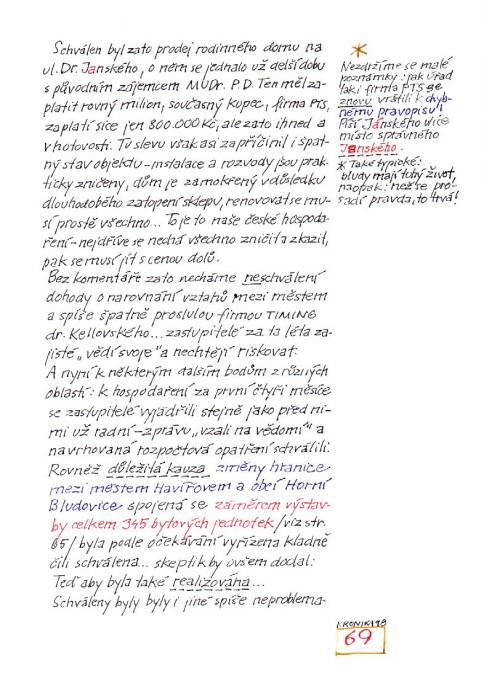 Schválen byl zato prodej rodinného domu na
ul. Dr. Janského, o něm se jednalo už delší dobu
s původním zájemcem MUDr. P.D. Ten měl za-
platit rovný milion, současný kupec, firma PTS,
zaplatí sice jen 800.000 Kč, ale zato ihned a
v hotovosti. Tu slevu však asi zapříčinil i špat-
ný stav objektu – instalace a rozvody jsou prak-
ticky zničeny, dům je zamokřený v důsledku
dlouhodobého zatopení sklepu, renovovat se mu-
sí prostě všechno... To je to naše české hospoda-
ření – nejdříve se nechá všechno zničit a zkazit,
pak se musí jít s cenou dolů.
Bez komentáře zato necháme neschválení
dohody o narovnání vztahů mezi městem
a spíše špatně proslulou firmou TIMING
dr. Kellovského... zastupitelé za ta léta za-
jisté „vědí svoje“ a nechtějí riskovat.
A nyní k některým dalším bodům z různých
oblastí: k hospodaření za první čtyři měsíce
se zastupitelé vyjádřili stejně jako před ni-
mi už radní – zprávu „vzali na vědomí“ a
navrhovaná rozpočtová opatření schválili.
Rovněž důležitá kauza změny hranice
mezi městem Havířovem a obcí Horní
Bludovice spojená se záměrem výstav-
by celkem 345 bytových jednotek /viz str.
65/ byla podle očekávání vyřízena kladně
čili schválena... skeptik by ovšem dodal:
Teď aby byla také realizována...
Schváleny byly byly i jiné spíše neproblema-
*
Nezdržíme se malé
poznámky: jak úřad
tak i firma PTS se
znovu vrátili k chyb-
nému pravopisu!
Píší Jánského ulice
místo správného
Janského.
* Také typické:
bludy mají tuhý život,
naopak: než se pro-
sadí pravda, to trvá!
KRONIKA 98
69